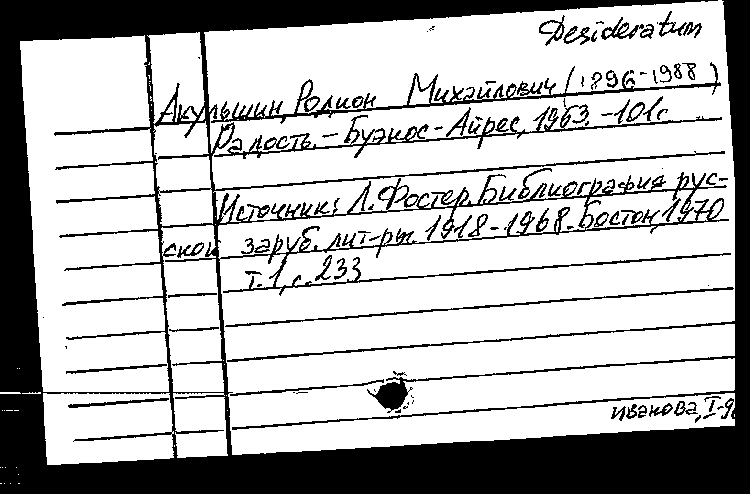 Desideratum
Акульшин, Родион Михайлович (1896-1988)
Радость. – Буэнос-Айрес, 1963. – 101с.
Источник: Л. Фостер. Библиография рус-
ской заруб. лит-ры. 1918-1968. Бостон, 1970
т. 1, с. 233
Иванова, I-9